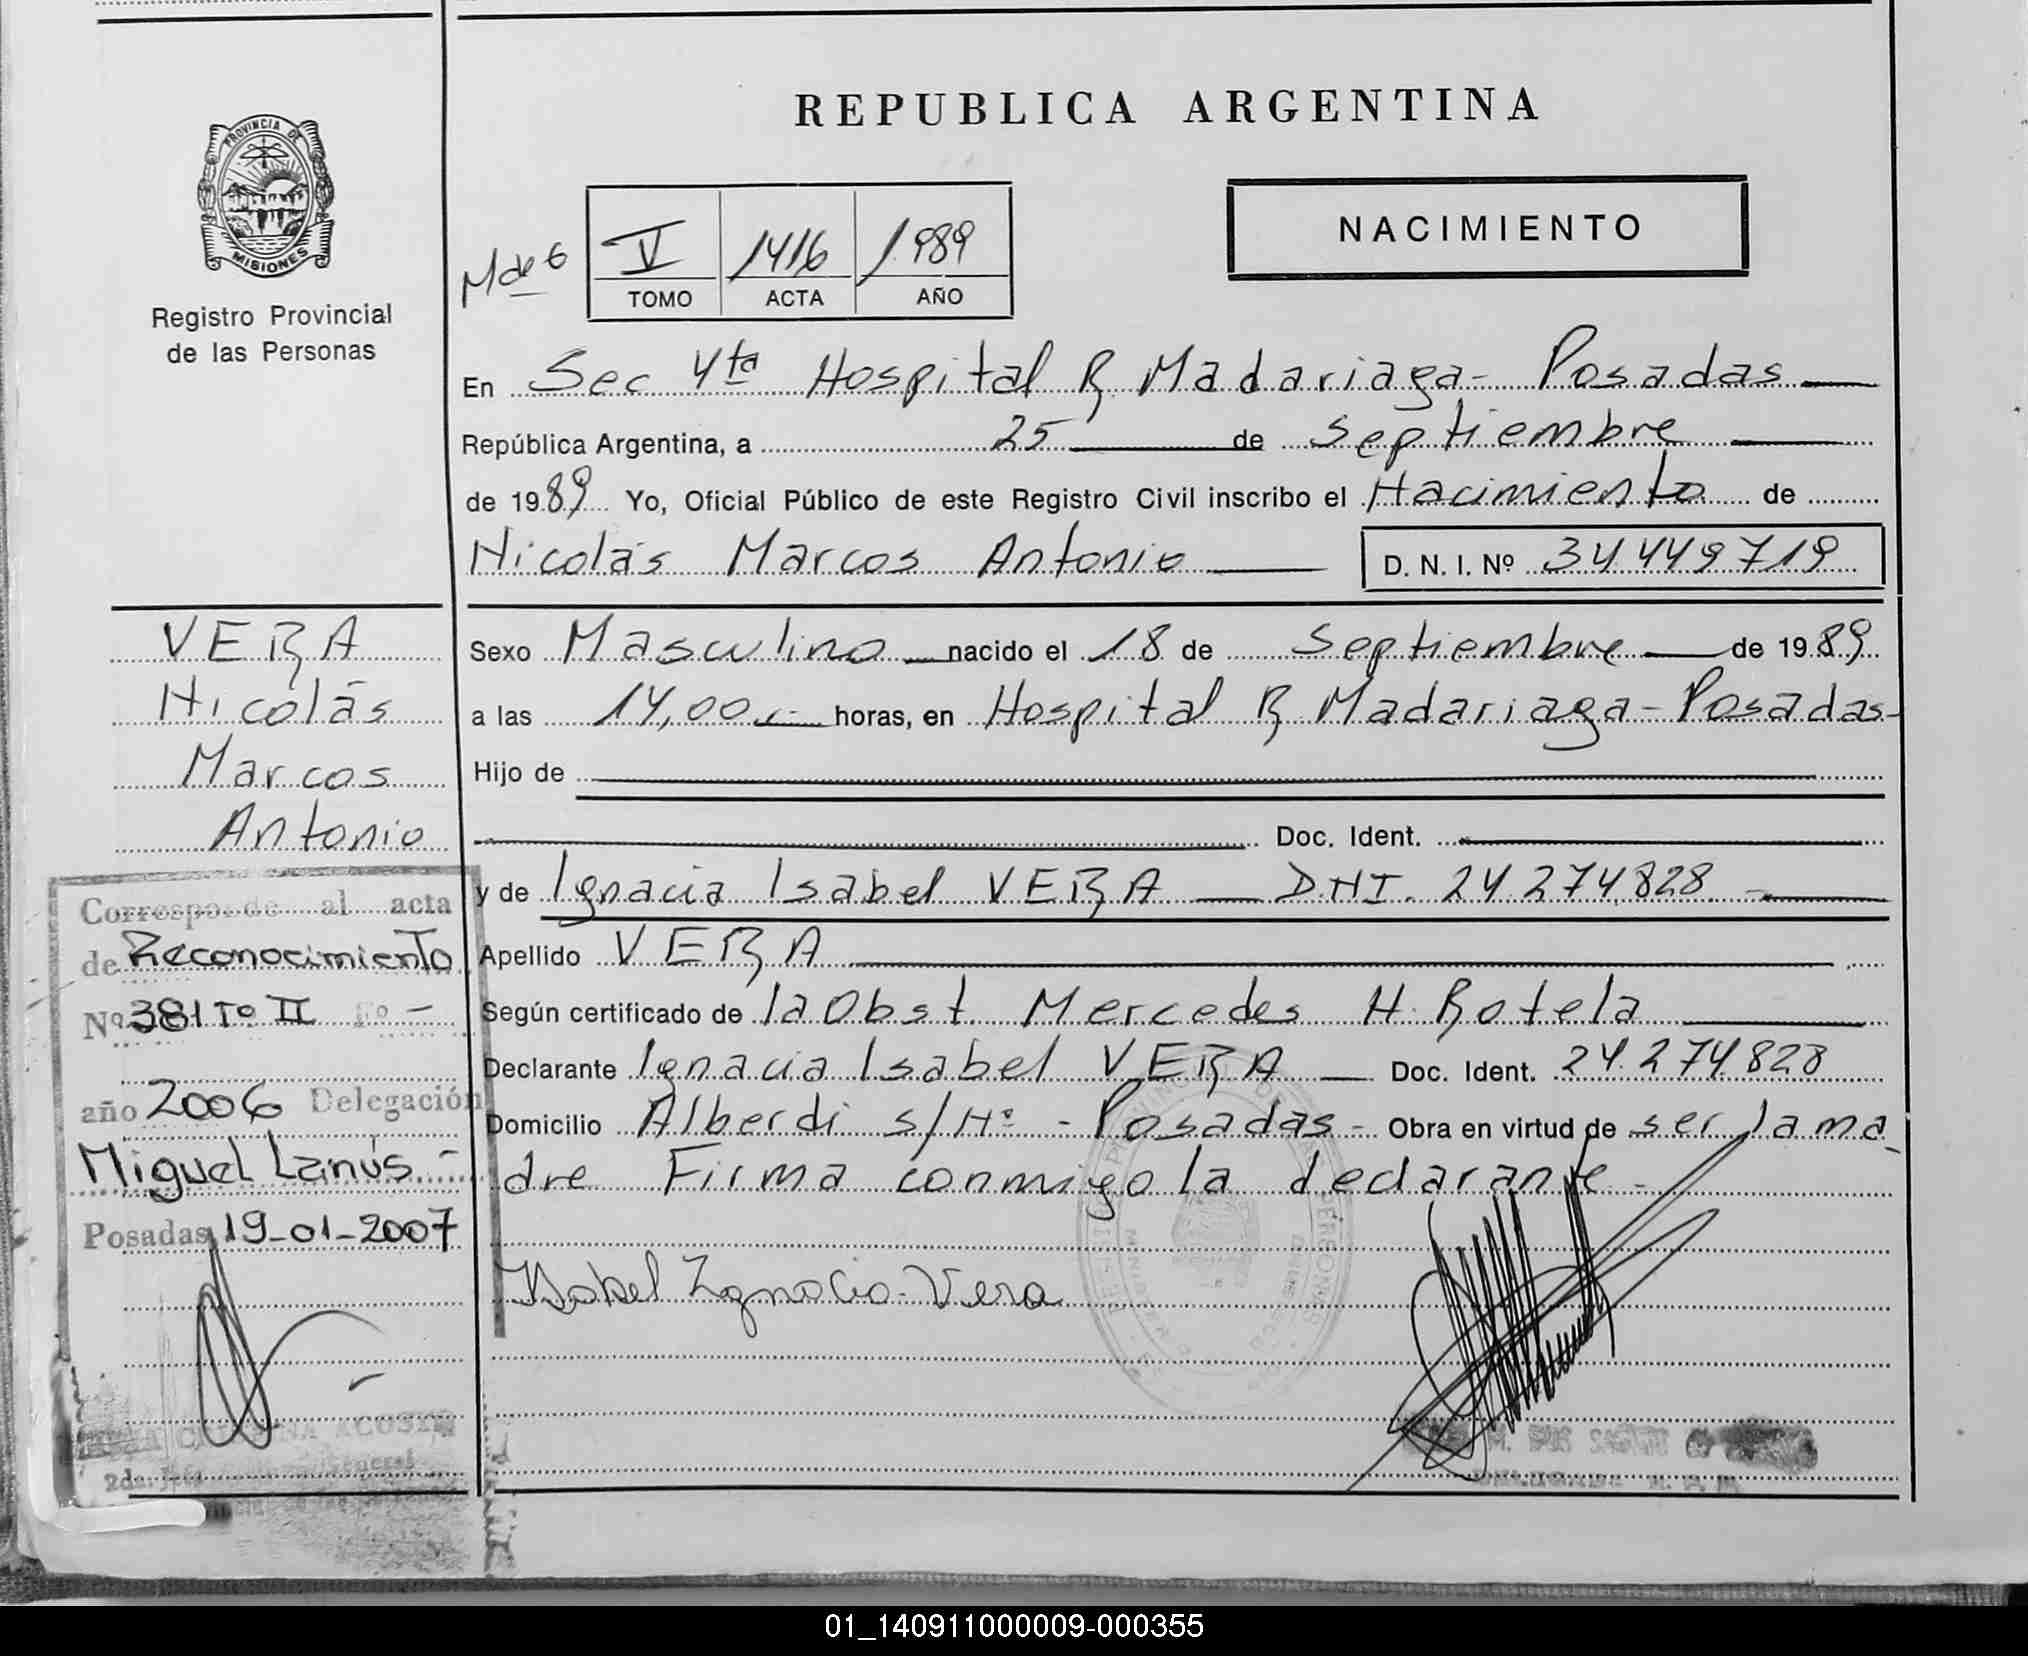 REPUBLICA ARGENTINA
PROVINCIA DE
MISIONES
Registro Provincial
de las Personas
NACIMIENTO
M de 6
V 1416 1989
TOMO ACTA AÑO
En Sec 4ta Hospital R. Madariaga - Posadas
República Argentina, a 25 de Septiembre
de 1989 Yo, Oficial Público de este Registro Civil inscribo el Nacimiento de
Nicolás Marcos Antonio D. N. I. Nº 34449719
VERA
Nicolás
Marcos
Antonio
Sexo Masculino nacido el 18 de Septiembre de 1989
a las 14,00 horas, en Hospital R Madariaga - Posadas -
Hijo de
Doc. Ident.
y de Ignacia Isabel VERA DNI. 24.274.828 -
Apellido VERA
Según certificado de la Obst. Mercedes H. Rotela
Declarante Ignacia Isabel VERA Doc. Ident. 24.274.828
Domicilio Alberdi s/Nº - Posadas - Obra en virtud de ser la ma-
dre Firma conmigo la declarante -
Isabel Ignacia Vera
Corresponde al acta
de Reconocimiento
Nº 381 Tº II Fº -
año 2006 Delegación
Miguel Lanús -
Posadas, 19-01-2007
ACOSTA
01_140911000009-000355